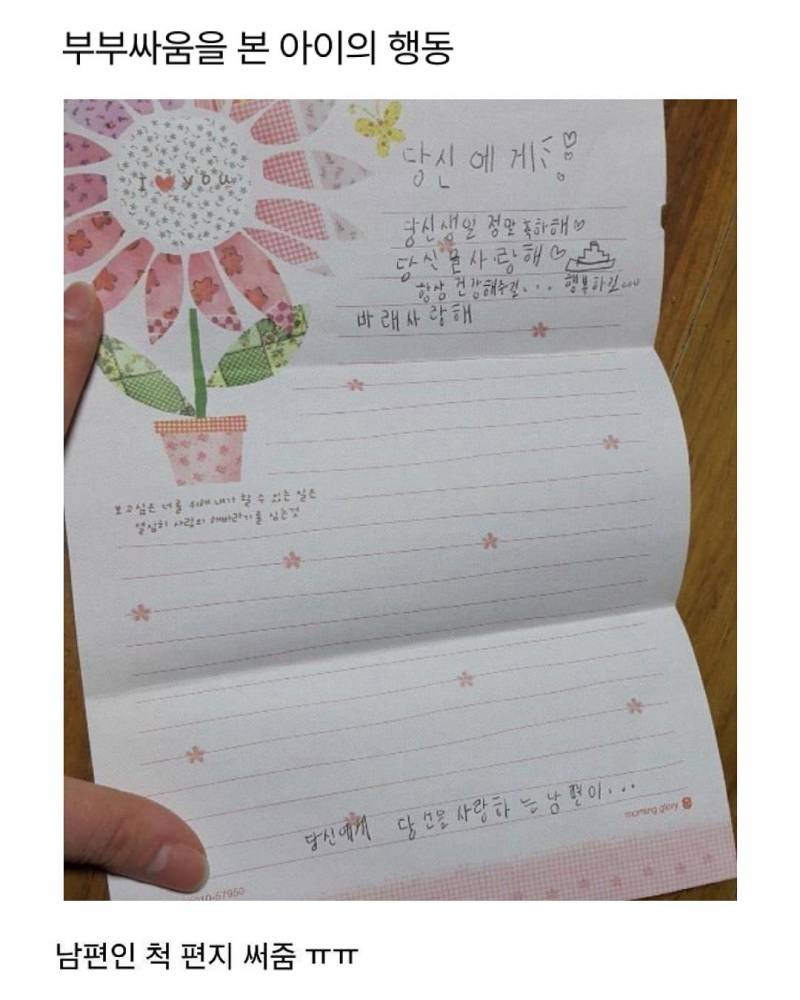 부부싸움을 본 아이의 행동
I ♥ you
당신에게
당신생일 정말 축하해♡
당신을사랑해♡
항상 건강해주길... 행복하길...
바래사랑해
보고싶은 너를 위해 내가 할 수 있는 일은
열심히 사랑의 해바라기를 심는것
당신에게 당신을사랑하는남편이...
morning glory
010-57950
남편인 척 편지 써줌 ㅠㅠ